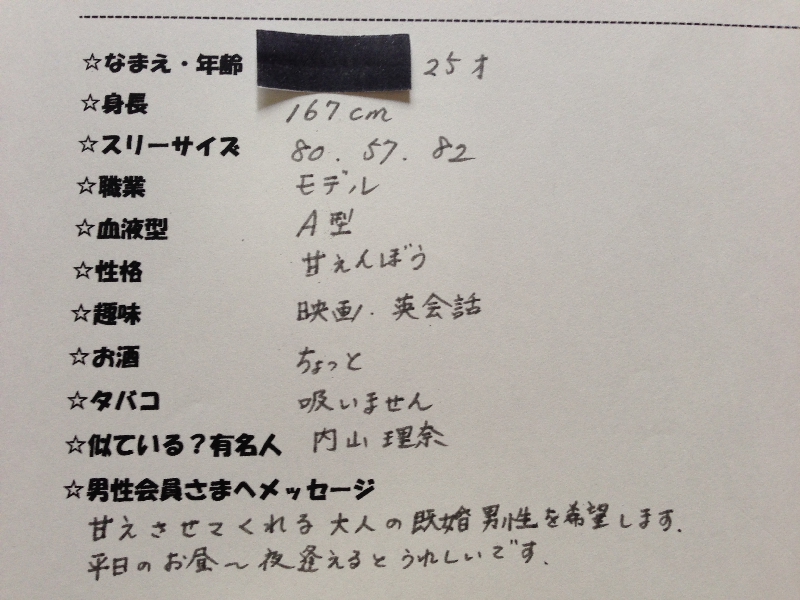 ☆なまえ・年齢 25才
☆身長 167cm
☆スリーサイズ 80. 57. 82
☆職業 モデル
☆血液型 A型
☆性格 甘えんぼう
☆趣味 映画. 英会話
☆お酒 ちょっと
☆タバコ 吸いません
☆似ている？有名人 内山理奈
☆男性会員さまへメッセージ
甘えさせてくれる大人の既婚男性を希望します.
平日のお昼〜夜逢えるとうれしいです.